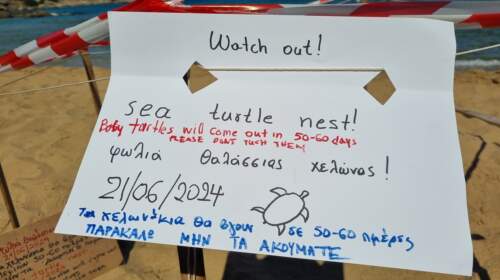 Watch out!
sea turtle nest!
Baby turtles will come out in 50-60 days
PLEASE DONT TUCH THEM
φωλιά θαλάσσιας χελώνας!
21/06/2024
Τα χελωνάκια θα βγουν σε 50-60 ημέρες
ΠΑΡΑΚΑΛΩ ΜΗΝ ΤΑ ΑΚΟΥΜΑΤΕ